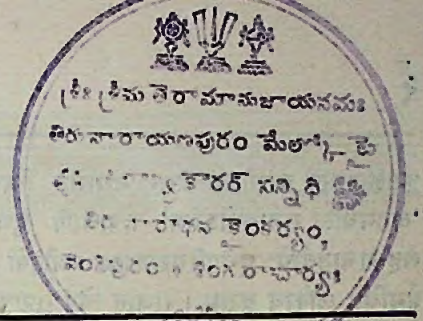 శ్రీః శ్రీమ తెరామానుజాయనమః
తిరునారాయణపురం మేల్కోటై
కారర్ సన్నిధి
తిరువారాధన కైంకర్యం,